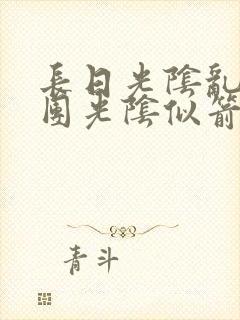 長日光陰亂
園光陰似箭
青斗